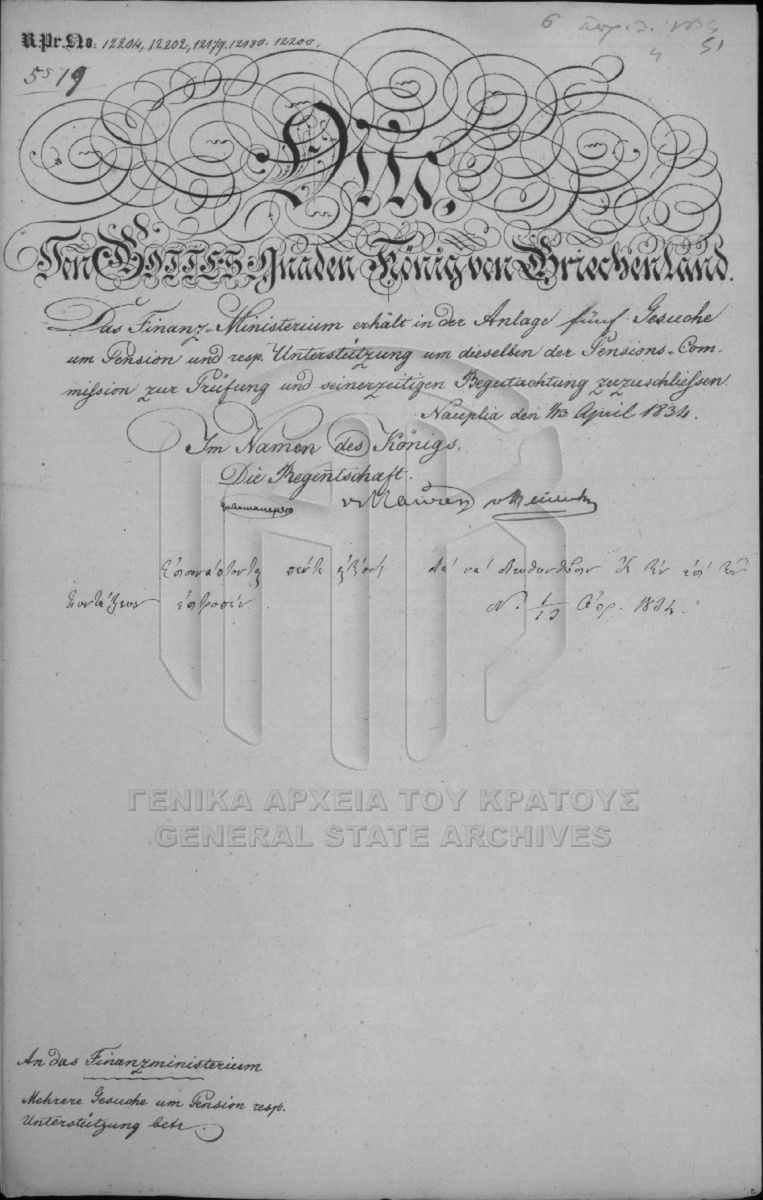 R.Pr.No: 12204, 12202, 12179. 12180. 12200.
6 Απρ. 1834
51
5519
Von GOTTES Gnaden König von Griechenland.
Das Finanz-Ministerium erhält in der Anlage fünf Gesuche
um Pension und resp. Unterstützung um dieselben der Pensions-Com-
mission zur Prüfung und seinerzeitigen Begutachtung zuzuschliessen.
Nauplia den 1/13 April 1834.
Im Namen des Königs.
Die Regentschaft.
πέντε
N. 1/13 Απρ. 1834.
ΓΕΝΙΚΑ ΑΡΧΕΙΑ ΤΟΥ ΚΡΑΤΟΥΣ
GENERAL STATE ARCHIVES
An das Finanzministerium
Mehrere Gesuche um Pension resp.
Unterstützung betr.